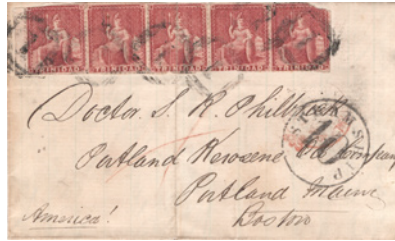 TRINIDAD TRINIDAD TRINIDAD TRINIDAD TRINIDAD
Doctor S. R. Philbrick
Portland Kerosene Oil Company
Portland Maine
America! Boston
10